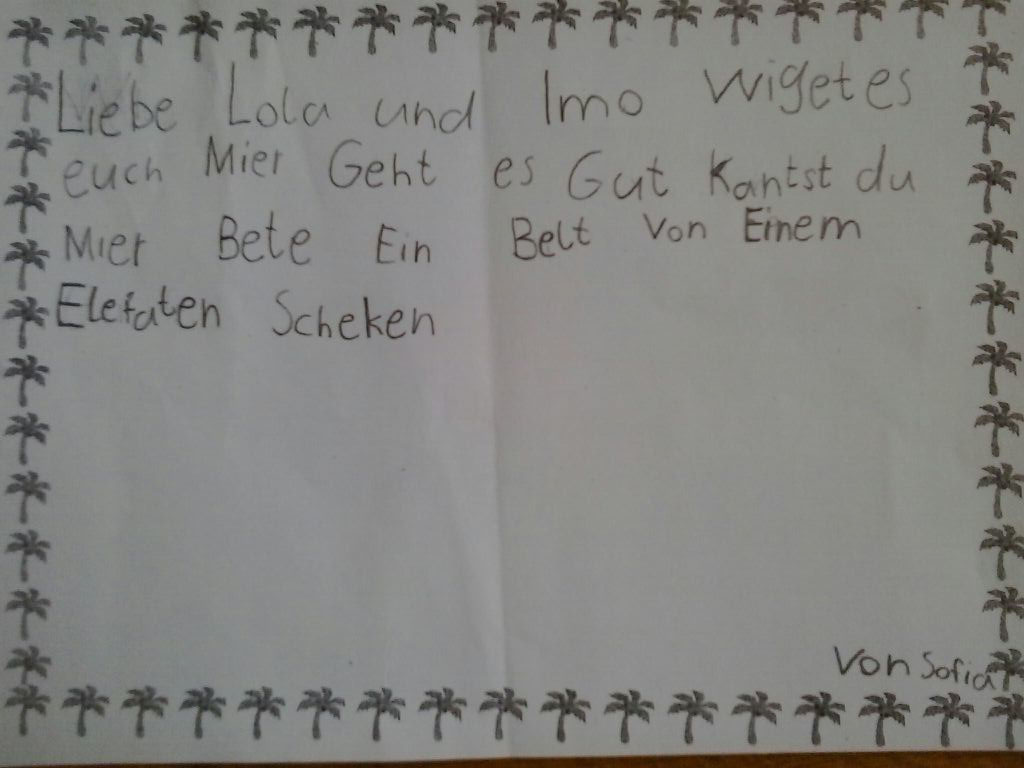 Liebe Lola und Imo wiget es
euch Mier Geht es Gut Kantst du
Mier Bete Ein Belt Von Einem
Elefaten Scheken
Von Sofia